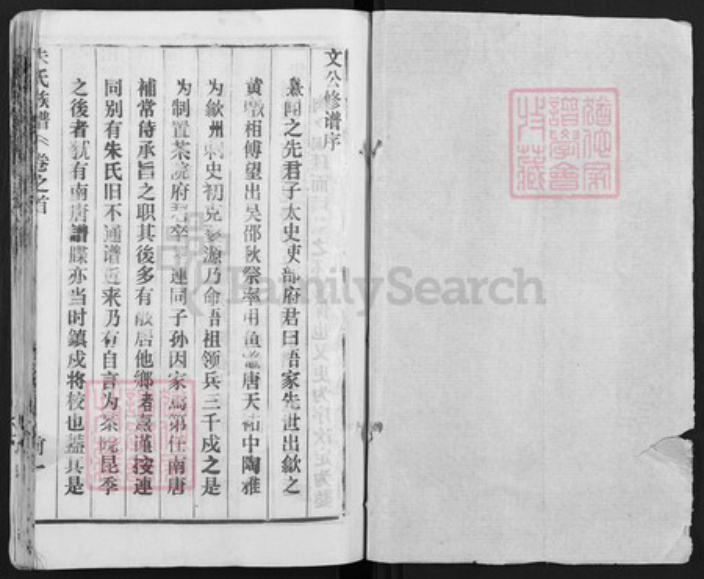 文公修谱序
熹聞之先君子太史吏部府君曰吾家先世出歙之
黄墩相傅望出吴邵秋祭率用鱼 唐天祐中陶雅
为歙州刺史初克婺源乃命吾祖领兵三千戍之是
为制置茶院府君卒 連同子孙因家焉第仕南唐
補常侍承旨之职其後多有散居他鄉者熹谨按連
同别有朱氏旧不通谱近来乃有自言为茶院昆季
之後者犹有南唐譜牒亦当时鎮戍将校也蓋其是
朱氏族譜 卷之首
前一
FamilySearch